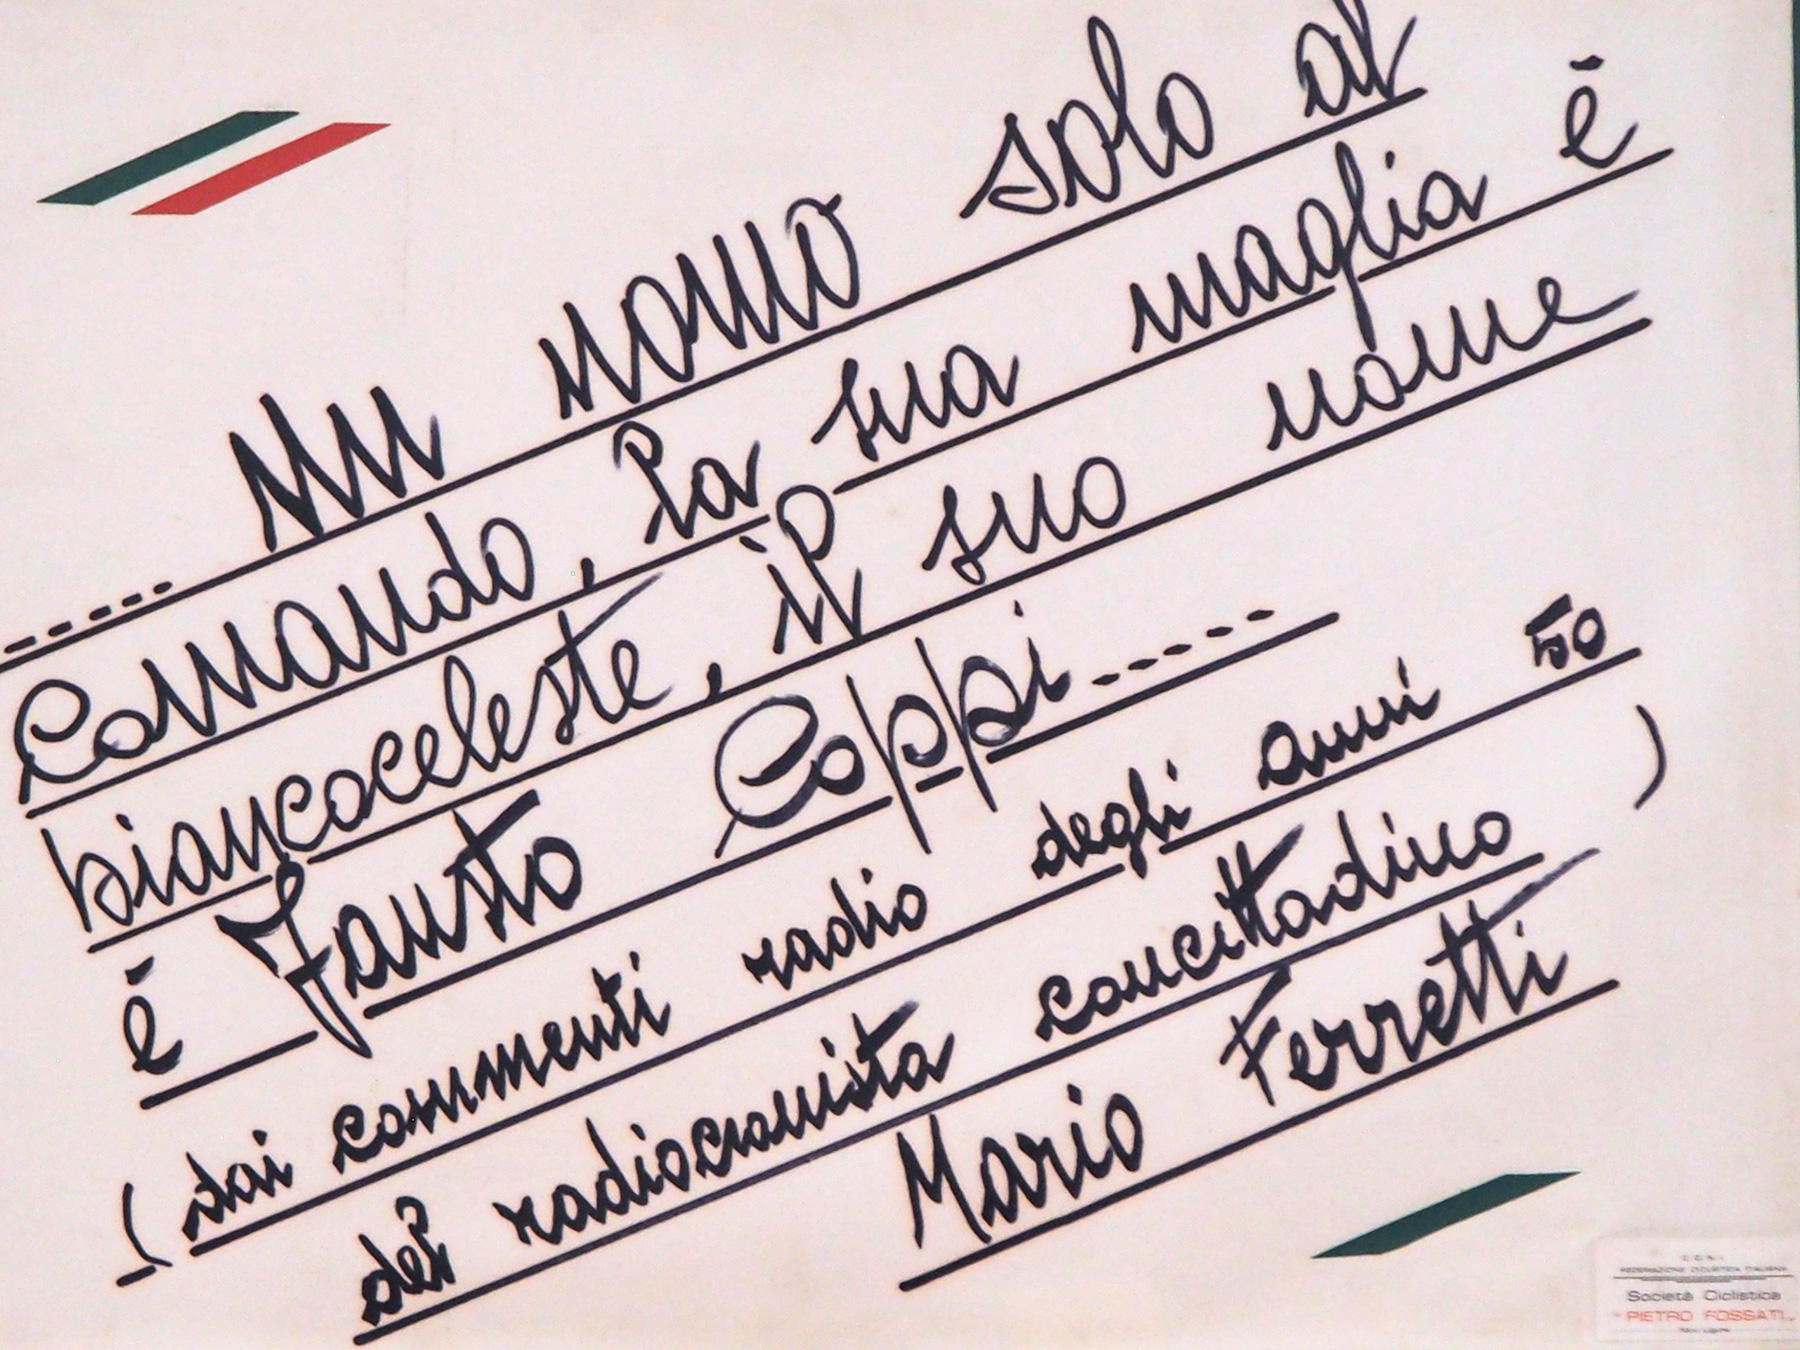 ..... un uomo solo al
comando, la sua maglia è
biancoceleste, il suo nome
è Fausto Coppi.....
(dai commenti radio degli anni 50
del radiocronista concittadino )
Mario Ferretti
C.O.N.I
FEDERAZIONE CICLISTICA ITALIANA
Società Ciclistica
"PIETRO FOSSATI"
Novi Ligure